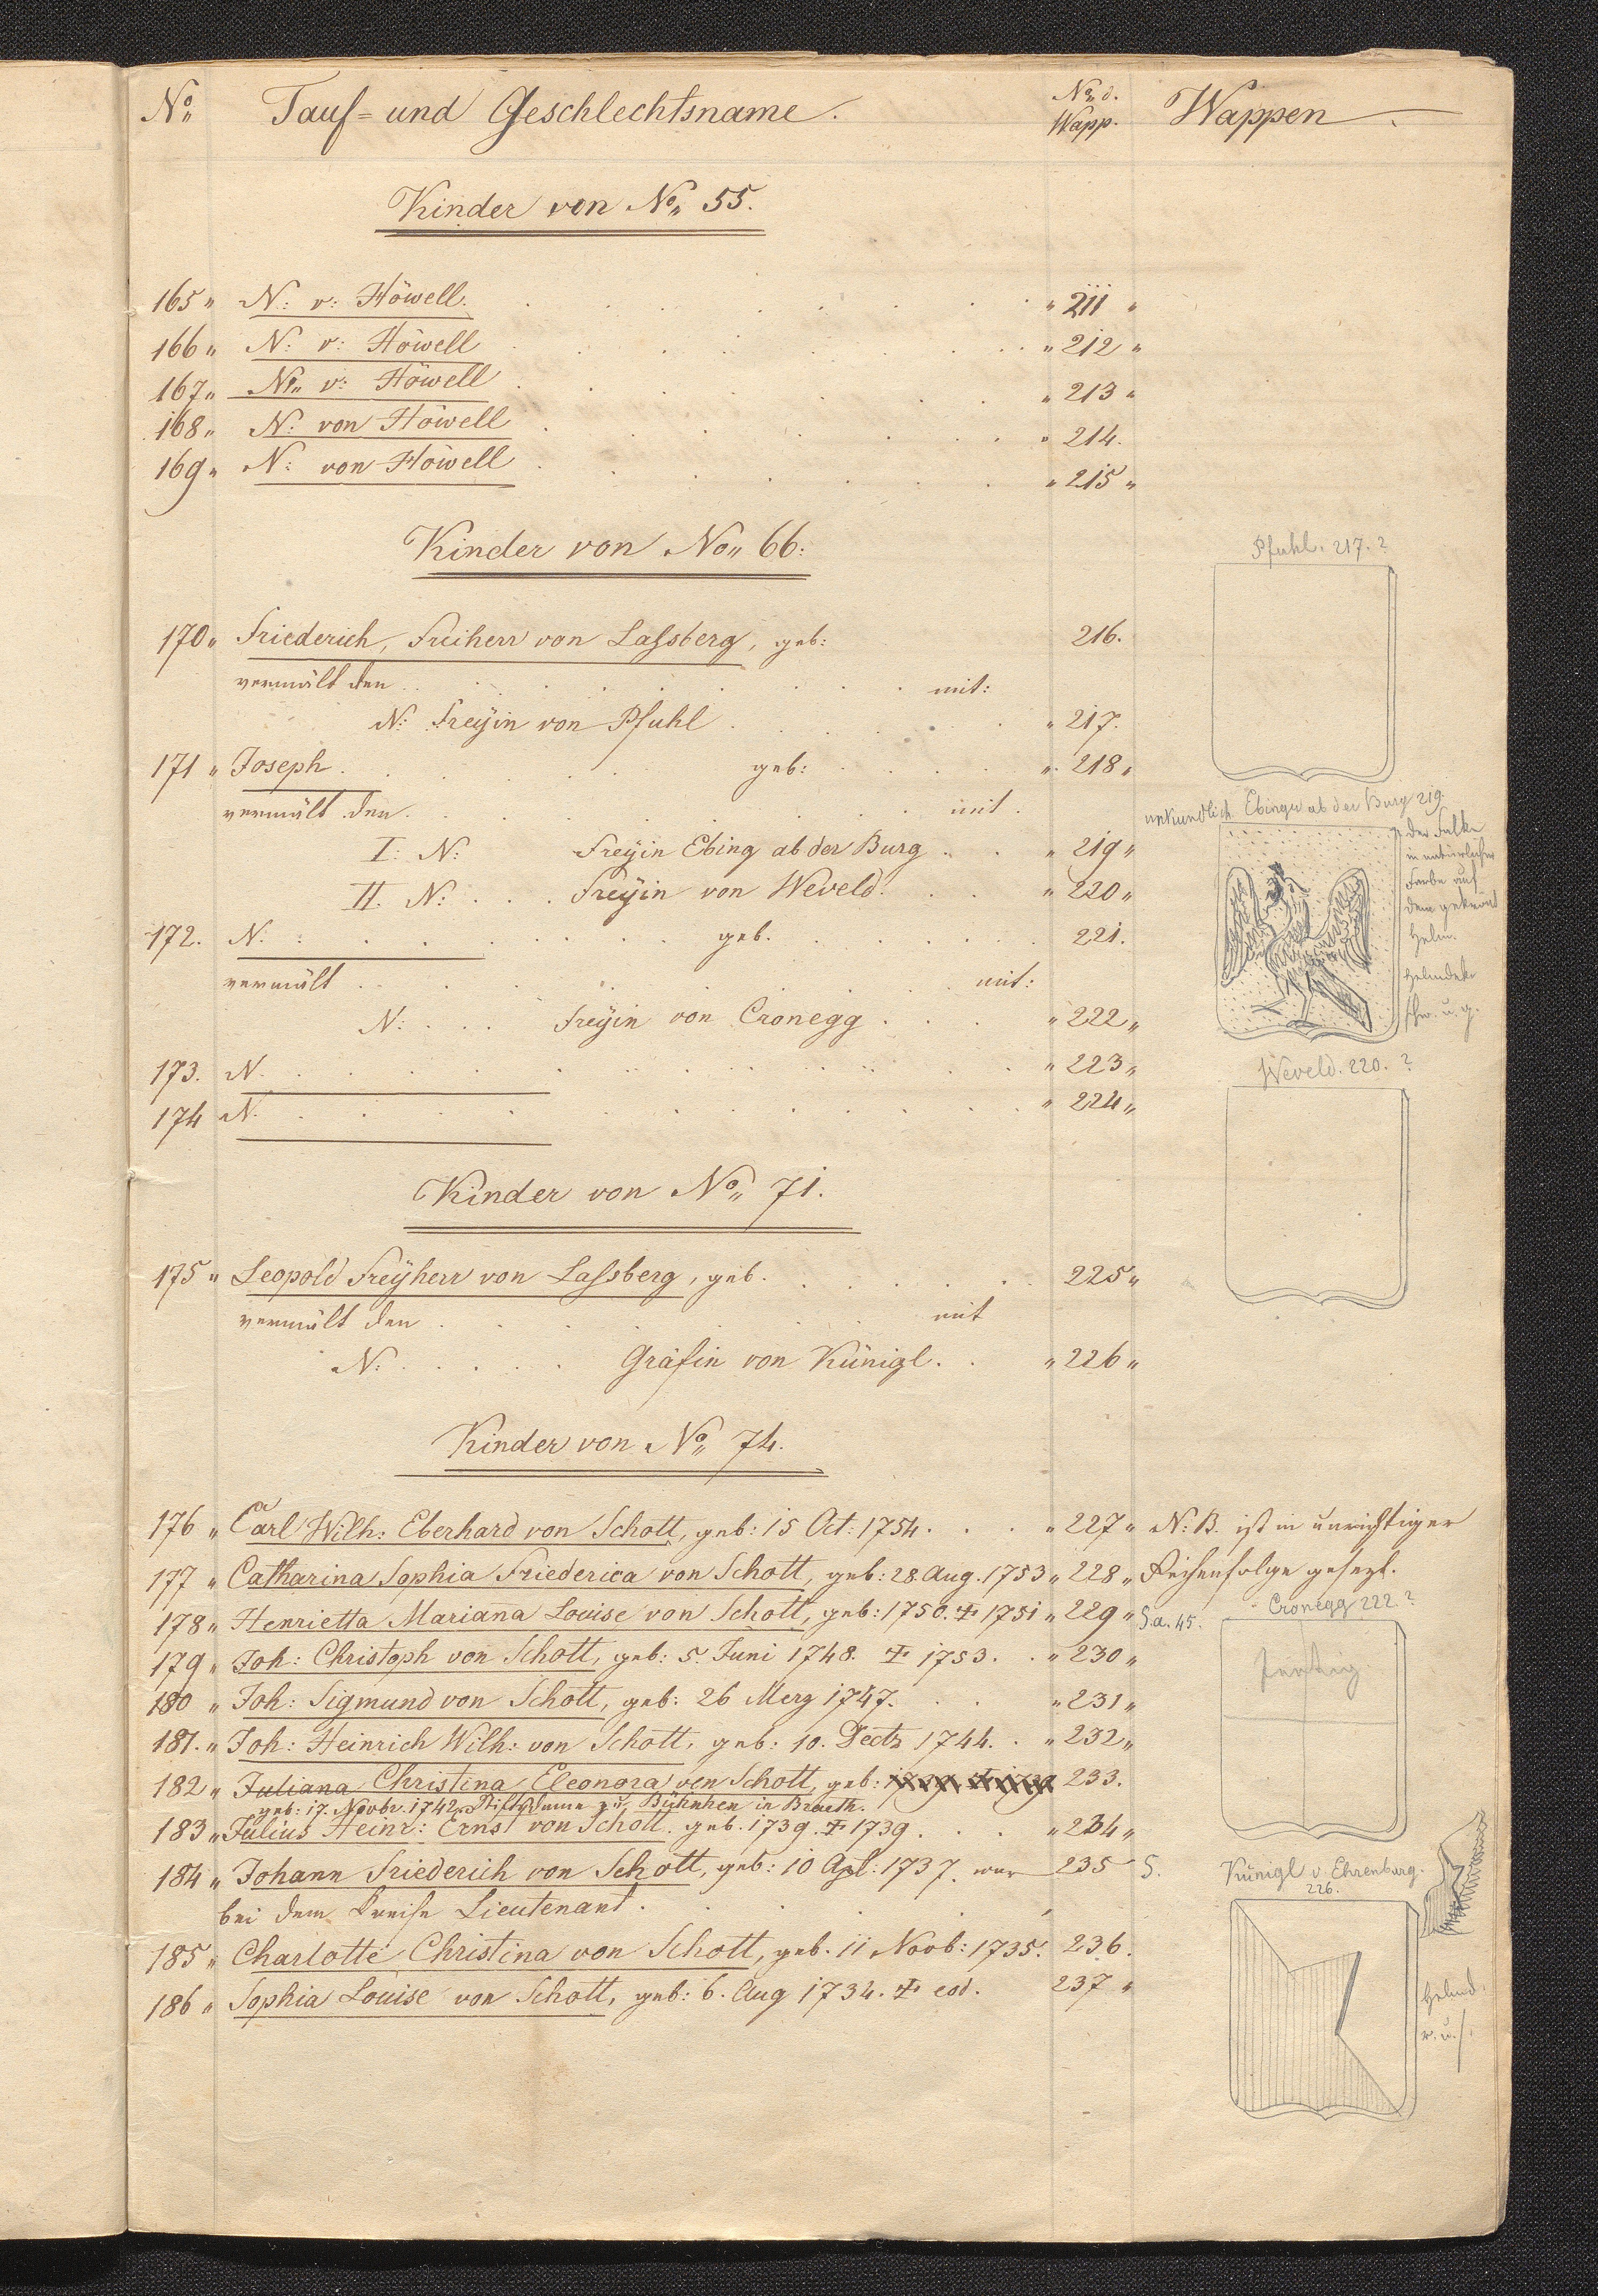 No. Tauf- und Geschlechtsname. No. d. Wapp. Wappen.
Kinder von No. 55.
165 " N: v: Höwell. " 211 "
166 " N: v: Höwell " 212 "
167 " N. v: Höwell " 213 "
168 " N: von Höwell " 214.
169 " N: von Höwell " 215 "
Kinder von No. 66:
Pfuhl. 217. ?
170 " Friederich, Freiherr von Laſsberg, geb: 216.
vermält den mit:
N: Freÿin von Pfuhl " 217.
171 " Joseph. geb: " 218 "
vermält den mit.
urkundlich Ebinger ab der Burg 219.
I: N: Freÿin Ebing ab der Burg " 219 "
II. N: Freÿin von Weveld. " 220 "
der Falke
in natürlicher
Farbe auf
dem gekrönt
Helm.
Helmdek
schw. u. g.
172. N: geb. 221.
vermält mit:
N: Freÿin von Cronegg " 222 "
173. N. " 223 "
Weveld. 220. ?
174 N. " 224 "
Kinder von No. 71.
175 " Leopold Freÿherr von Laſsberg, geb. 225 "
vermält den mit
N: Gräfin von Künigl. " 226 "
Kinder von No. 74.
176 " Carl Wilh: Eberhard von Schott, geb: 15 Oct: 1754. " 227 " N: B. ist in unrichtiger
177 " Catharina Sophia Friederica von Schott, geb: 28. Aug. 1753 " 228 " Reihenfolge gesezt.
178 " Henrietta Mariana Louise von Schott, geb: 1750. † 1751 " 229 " S. a. 45. Cronegg 222. ?
179 " Joh: Christoph von Schott, geb: 5. Juni 1748. † 1753. " 230 "
180 " Joh: Sigmund von Schott, geb: 26 Merz 1747. " 231 "
181. " Joh: Heinrich Wilh: von Schott, geb: 10. Decb 1744. " 232 "
182 " Juliana Christina Eleonora von Schott, geb: 1739 † 1739 233.
geb: 17. Novbr. 1742. Stiftsdame zu
183 " Julius Heinr: Ernst von Schott. geb. 1739. † 1739 " 234 "
184 " Johann Friederich von Schott, geb: 10 Apl: 1737. war 235 S.
Künigl v. Ehrenburg.
226.
bei dem Kreise Lieutenant.
185 " Charlotte Christina von Schott, geb. 11 Novb: 1735. 236.
186 " Sophia Louise von Schott, geb: 6. Aug 1734. † eod. 237 "
Helmd.
r. u. s.